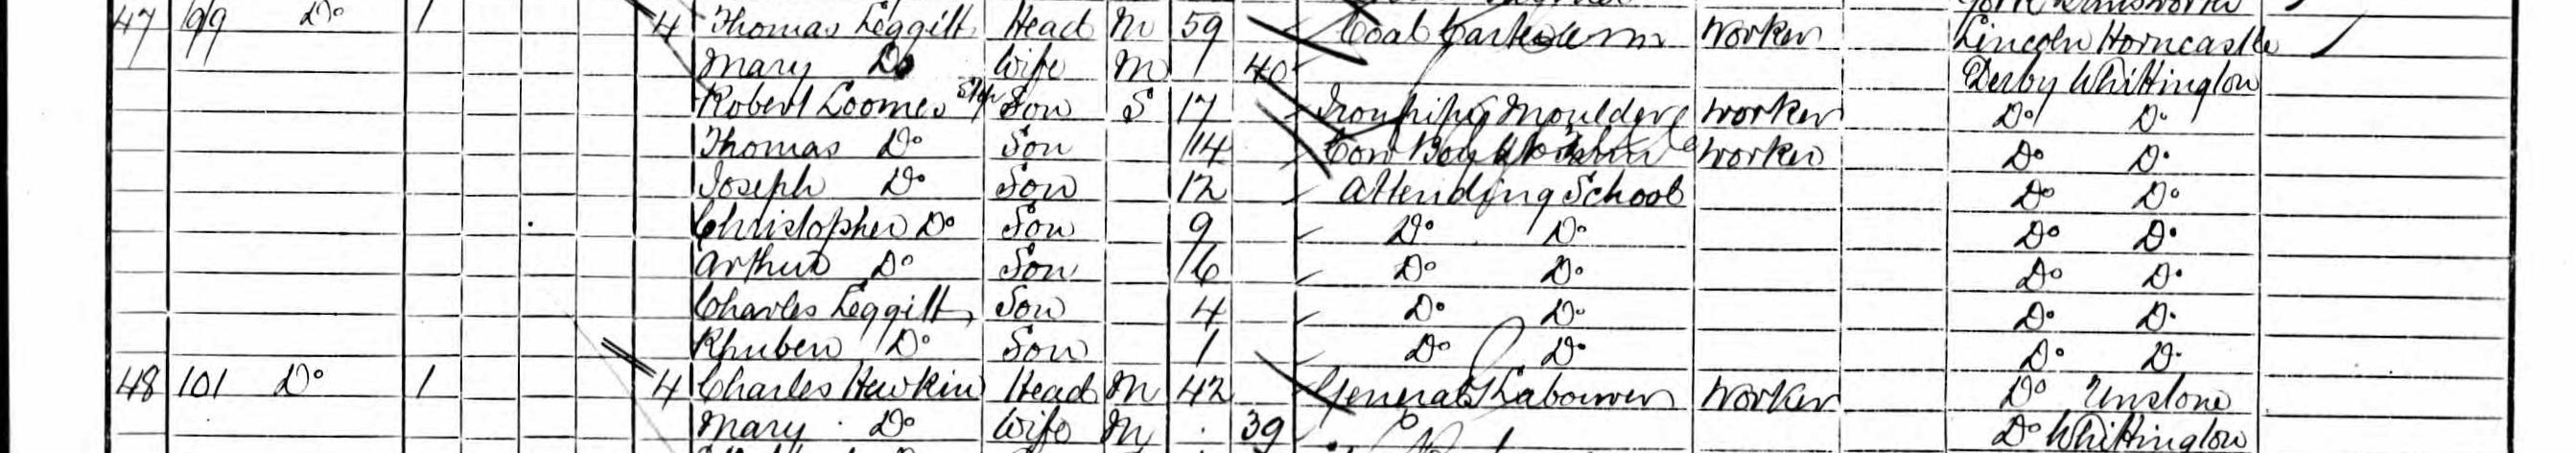 47 99 Do 1 4 Thomas Leggitt Head M 59 Coal Worker Lincoln Horncastle
Mary Do Wife M 40 Derby Whittington
Robert Loomes Step Son S 17 Iron Pipe Moulder Worker Do Do
Thomas Do Son 14 Cow Boy Worker Do Do
Joseph Do Son 12 Attending School Do Do
Christopher Do Son 9 Do Do Do Do
Arthur Do Son 6 Do Do Do Do
Charles Leggitt Son 4 Do Do Do Do
Rhuben Do Son 1 Do Do Do Do
48 101 Do 1 4 Charles Hewkin Head M 42 General Labourer Worker Do Unstone
Mary Do Wife M 39 Do Whittington